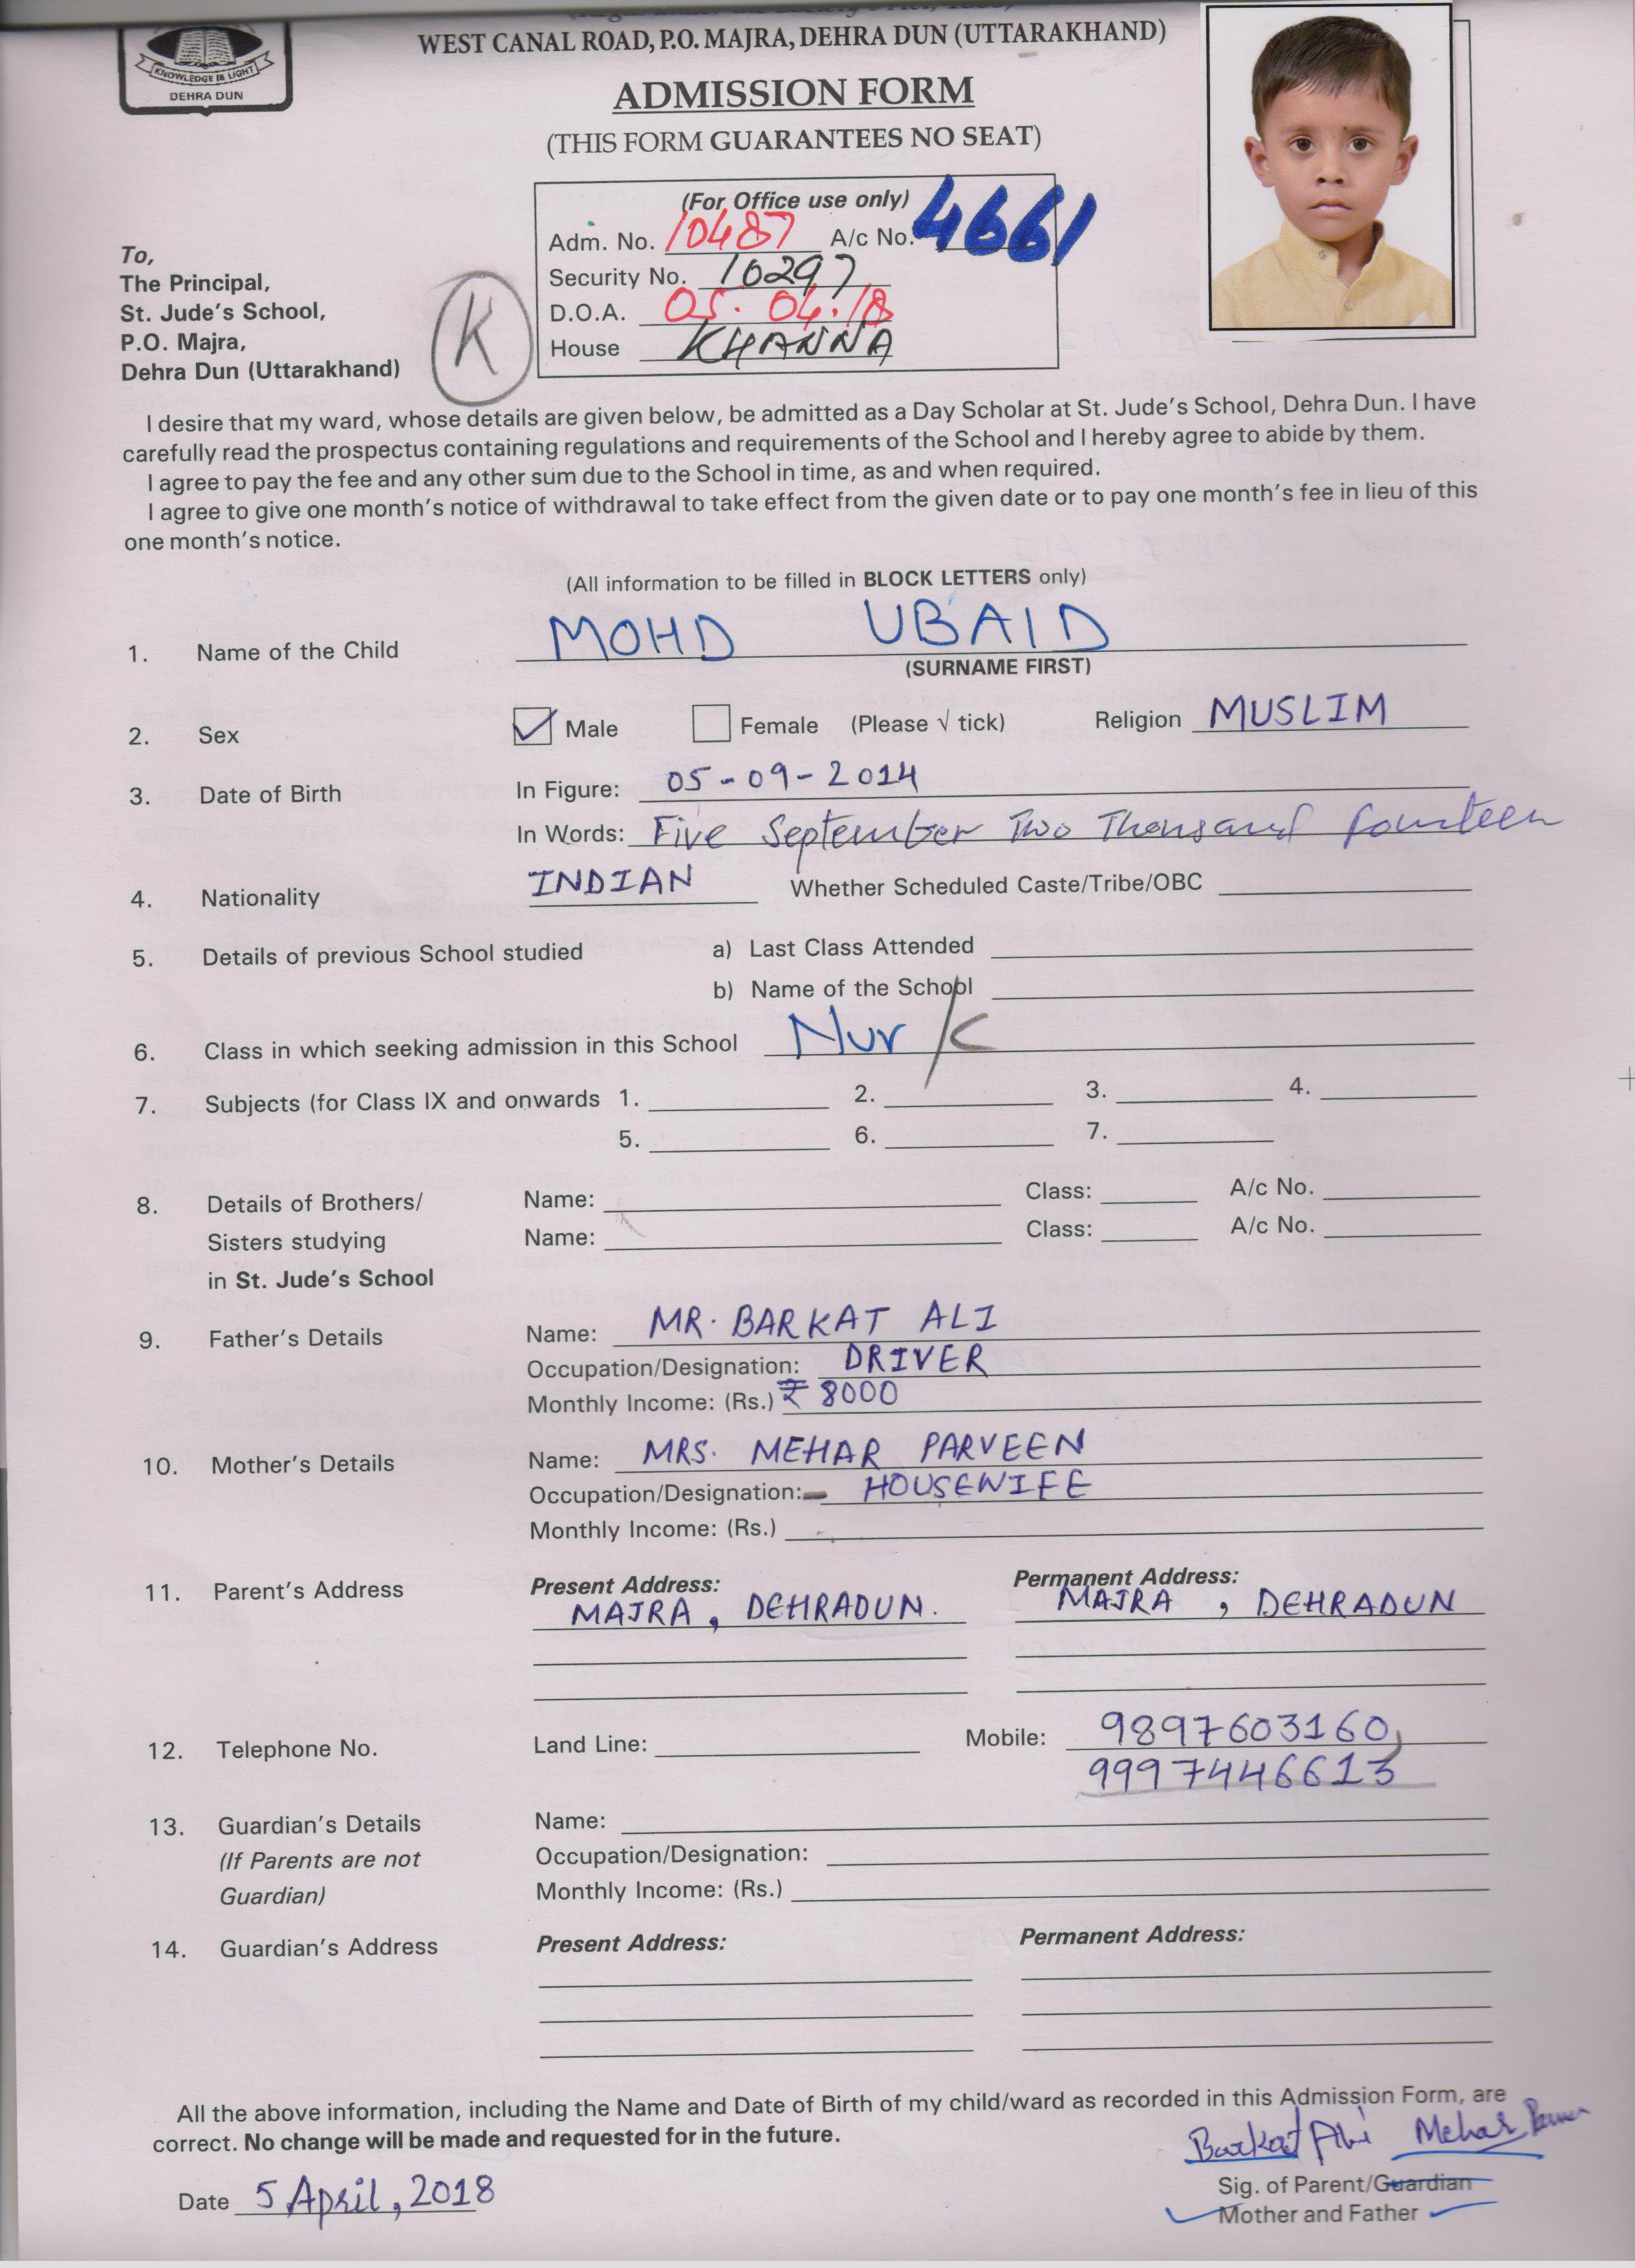 WEST CANAL ROAD, P.O. MAJRA, DEHRA DUN (UTTARAKHAND)
KNOWLEDGE IS LIGHT
DEHRA DUN
ADMISSION FORM
(THIS FORM GUARANTEES NO SEAT)
(For Office use only)
Adm. No. 10487 A/c No. 4661
Security No. 10297
D.O.A. 05.04.18
House KHANNA
K
To,
The Principal,
St. Jude's School,
P.O. Majra,
Dehra Dun (Uttarakhand)
I desire that my ward, whose details are given below, be admitted as a Day Scholar at St. Jude's School, Dehra Dun. I have
carefully read the prospectus containing regulations and requirements of the School and I hereby agree to abide by them.
I agree to pay the fee and any other sum due to the School in time, as and when required.
I agree to give one month's notice of withdrawal to take effect from the given date or to pay one month's fee in lieu of this
one month's notice.
(All information to be filled in BLOCK LETTERS only)
1. Name of the Child MOHD UBAID
(SURNAME FIRST)
2. Sex Male Female (Please √ tick) Religion MUSLIM
3. Date of Birth In Figure: 05-09-2014
In Words: Five September Two Thousand fourteen
4. Nationality INDIAN Whether Scheduled Caste/Tribe/OBC
5. Details of previous School studied a) Last Class Attended
b) Name of the School
6. Class in which seeking admission in this School Nur/K
7. Subjects (for Class IX and onwards 1. 2. 3. 4.
5. 6. 7.
8. Details of Brothers/ Name: Class: A/c No.
Sisters studying Name: Class: A/c No.
in St. Jude's School
9. Father's Details Name: MR. BARKAT ALI
Occupation/Designation: DRIVER
Monthly Income: (Rs.) ₹ 8000
10. Mother's Details Name: MRS. MEHAR PARVEEN
Occupation/Designation: HOUSEWIFE
Monthly Income: (Rs.)
11. Parent's Address Present Address: Permanent Address:
MAJRA, DEHRADUN. MAJRA, DEHRADUN
12. Telephone No. Land Line: Mobile: 9897603160,
9997446613
13. Guardian's Details Name:
(If Parents are not Occupation/Designation:
Guardian) Monthly Income: (Rs.)
14. Guardian's Address Present Address: Permanent Address:
All the above information, including the Name and Date of Birth of my child/ward as recorded in this Admission Form, are
correct. No change will be made and requested for in the future.
Barkat Ali Mehar
Sig. of Parent/Guardian
Date 5 April, 2018
Mother and Father